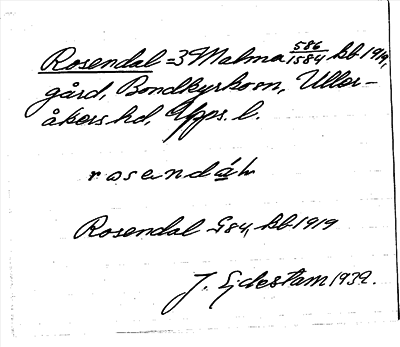 Rosendal =3 Malma 586/1584 kb 1919,
gård, Bondkyrko sn, Uller-
åkers hd, Upps. l.
rosendáh
Rosendal G84, kb 1919
J. Ejdestam 1939.